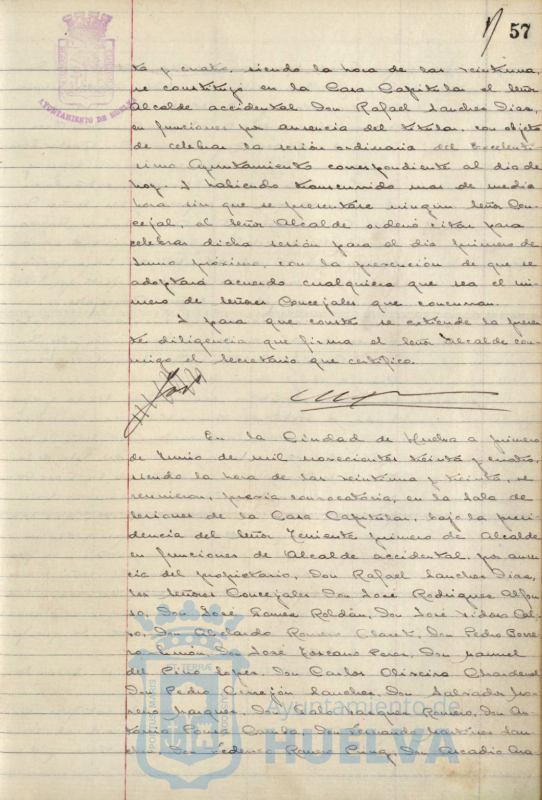 57
AYUNTAMIENTO DE HUELVA
ta y cuatro, siendo la hora de las veintiuna,
se constituyó en la Casa Capitular el Señor
Alcalde accidental Don Rafael Sanchez Diaz,
en funciones por ausencia del titular, con objeto
de celebrar la sesión ordinaria del Excelentí-
simo Ayuntamiento correspondiente al dia de
hoy. Y habiendo transcurrido mas de media
hora sin que se presentáse ningun Señor Con-
cejal, el Señor Alcalde ordenó citar para
celebrar dicha sesión para el dia primero de
Junio próximo, con la prevención de que se
adoptará acuerdo cualquiera que sea el nú-
mero de Señores Concejales que concurran.
Y para que conste se extiende la presen-
te diligencia que firma el Señor Alcalde con-
migo el Secretario que certifico.
En la Ciudad de Huelva a primero
de Junio de mil novecientos treinta y cuatro,
siendo la hora de las veintiuna y treinta, se
reunieron, previa convocatoria, en la Sala de
Sesiones de la Casa Capitular, bajo la presi-
dencia del Señor Teniente primero de Alcalde
en funciones de Alcalde accidental, por ausen-
cia del propietario, Don Rafael Sanchez Diaz,
los Señores Concejales Don José Rodriguez Alfon-
so, Don José Gomez Roldán, Don José Isidoro
Don Abelardo Romero Claret, Don Pedro Borre-
ro Limón, Don José Toscano Perez, Don Manuel
del Pino Lopez, Don Carlos Oliveira Chardenal
Don Pedro Cerrejón Sanchez, Don Salvador Mo-
reno Marquez, Don Vazquez Romero, Don An-
tonio Pousa Camba, Don Fernando Martinez San-
Don Federico Romero Puig, Don Arcadio Ara-
PORTUS MARIS ET TERRAE CUSTODIA
Ayuntamiento de
HUELVA